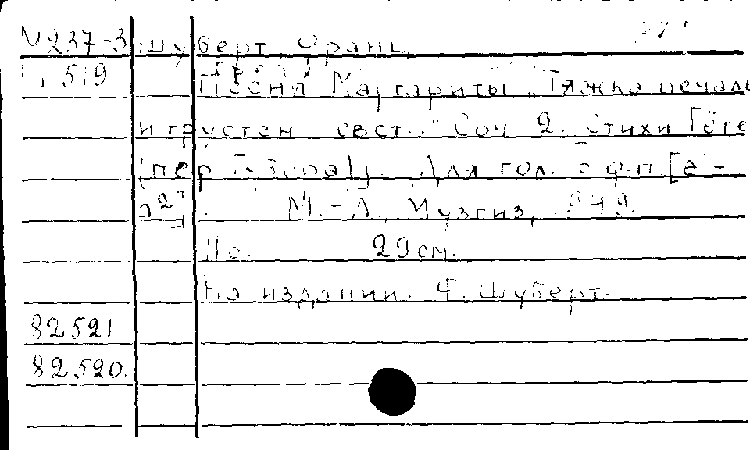 М237-3 Шуберт, Франц.
519 Песня Маргариты "Тяжка печаль
и грустен свет." Соч. 2. Стихи Гёте
(пер. Для гол. с ф.п. [e-
М.-Л., Музгиз, 1949.
29 см.
На издании: Ф. Шуберт.
82521
82520.